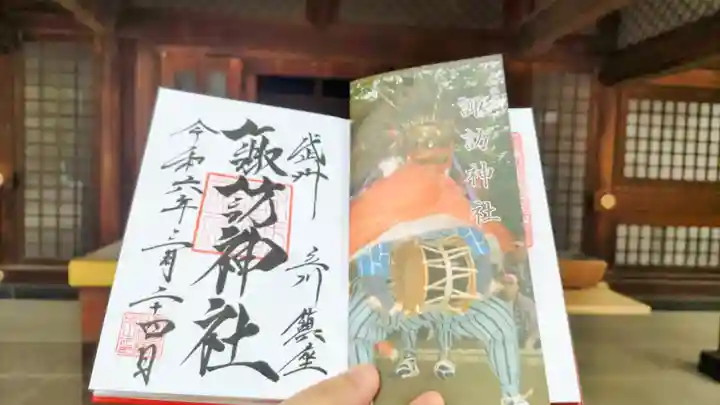 武州 立川 鎮座
諏訪神社
令和六年 三月二十四日
諏訪神社